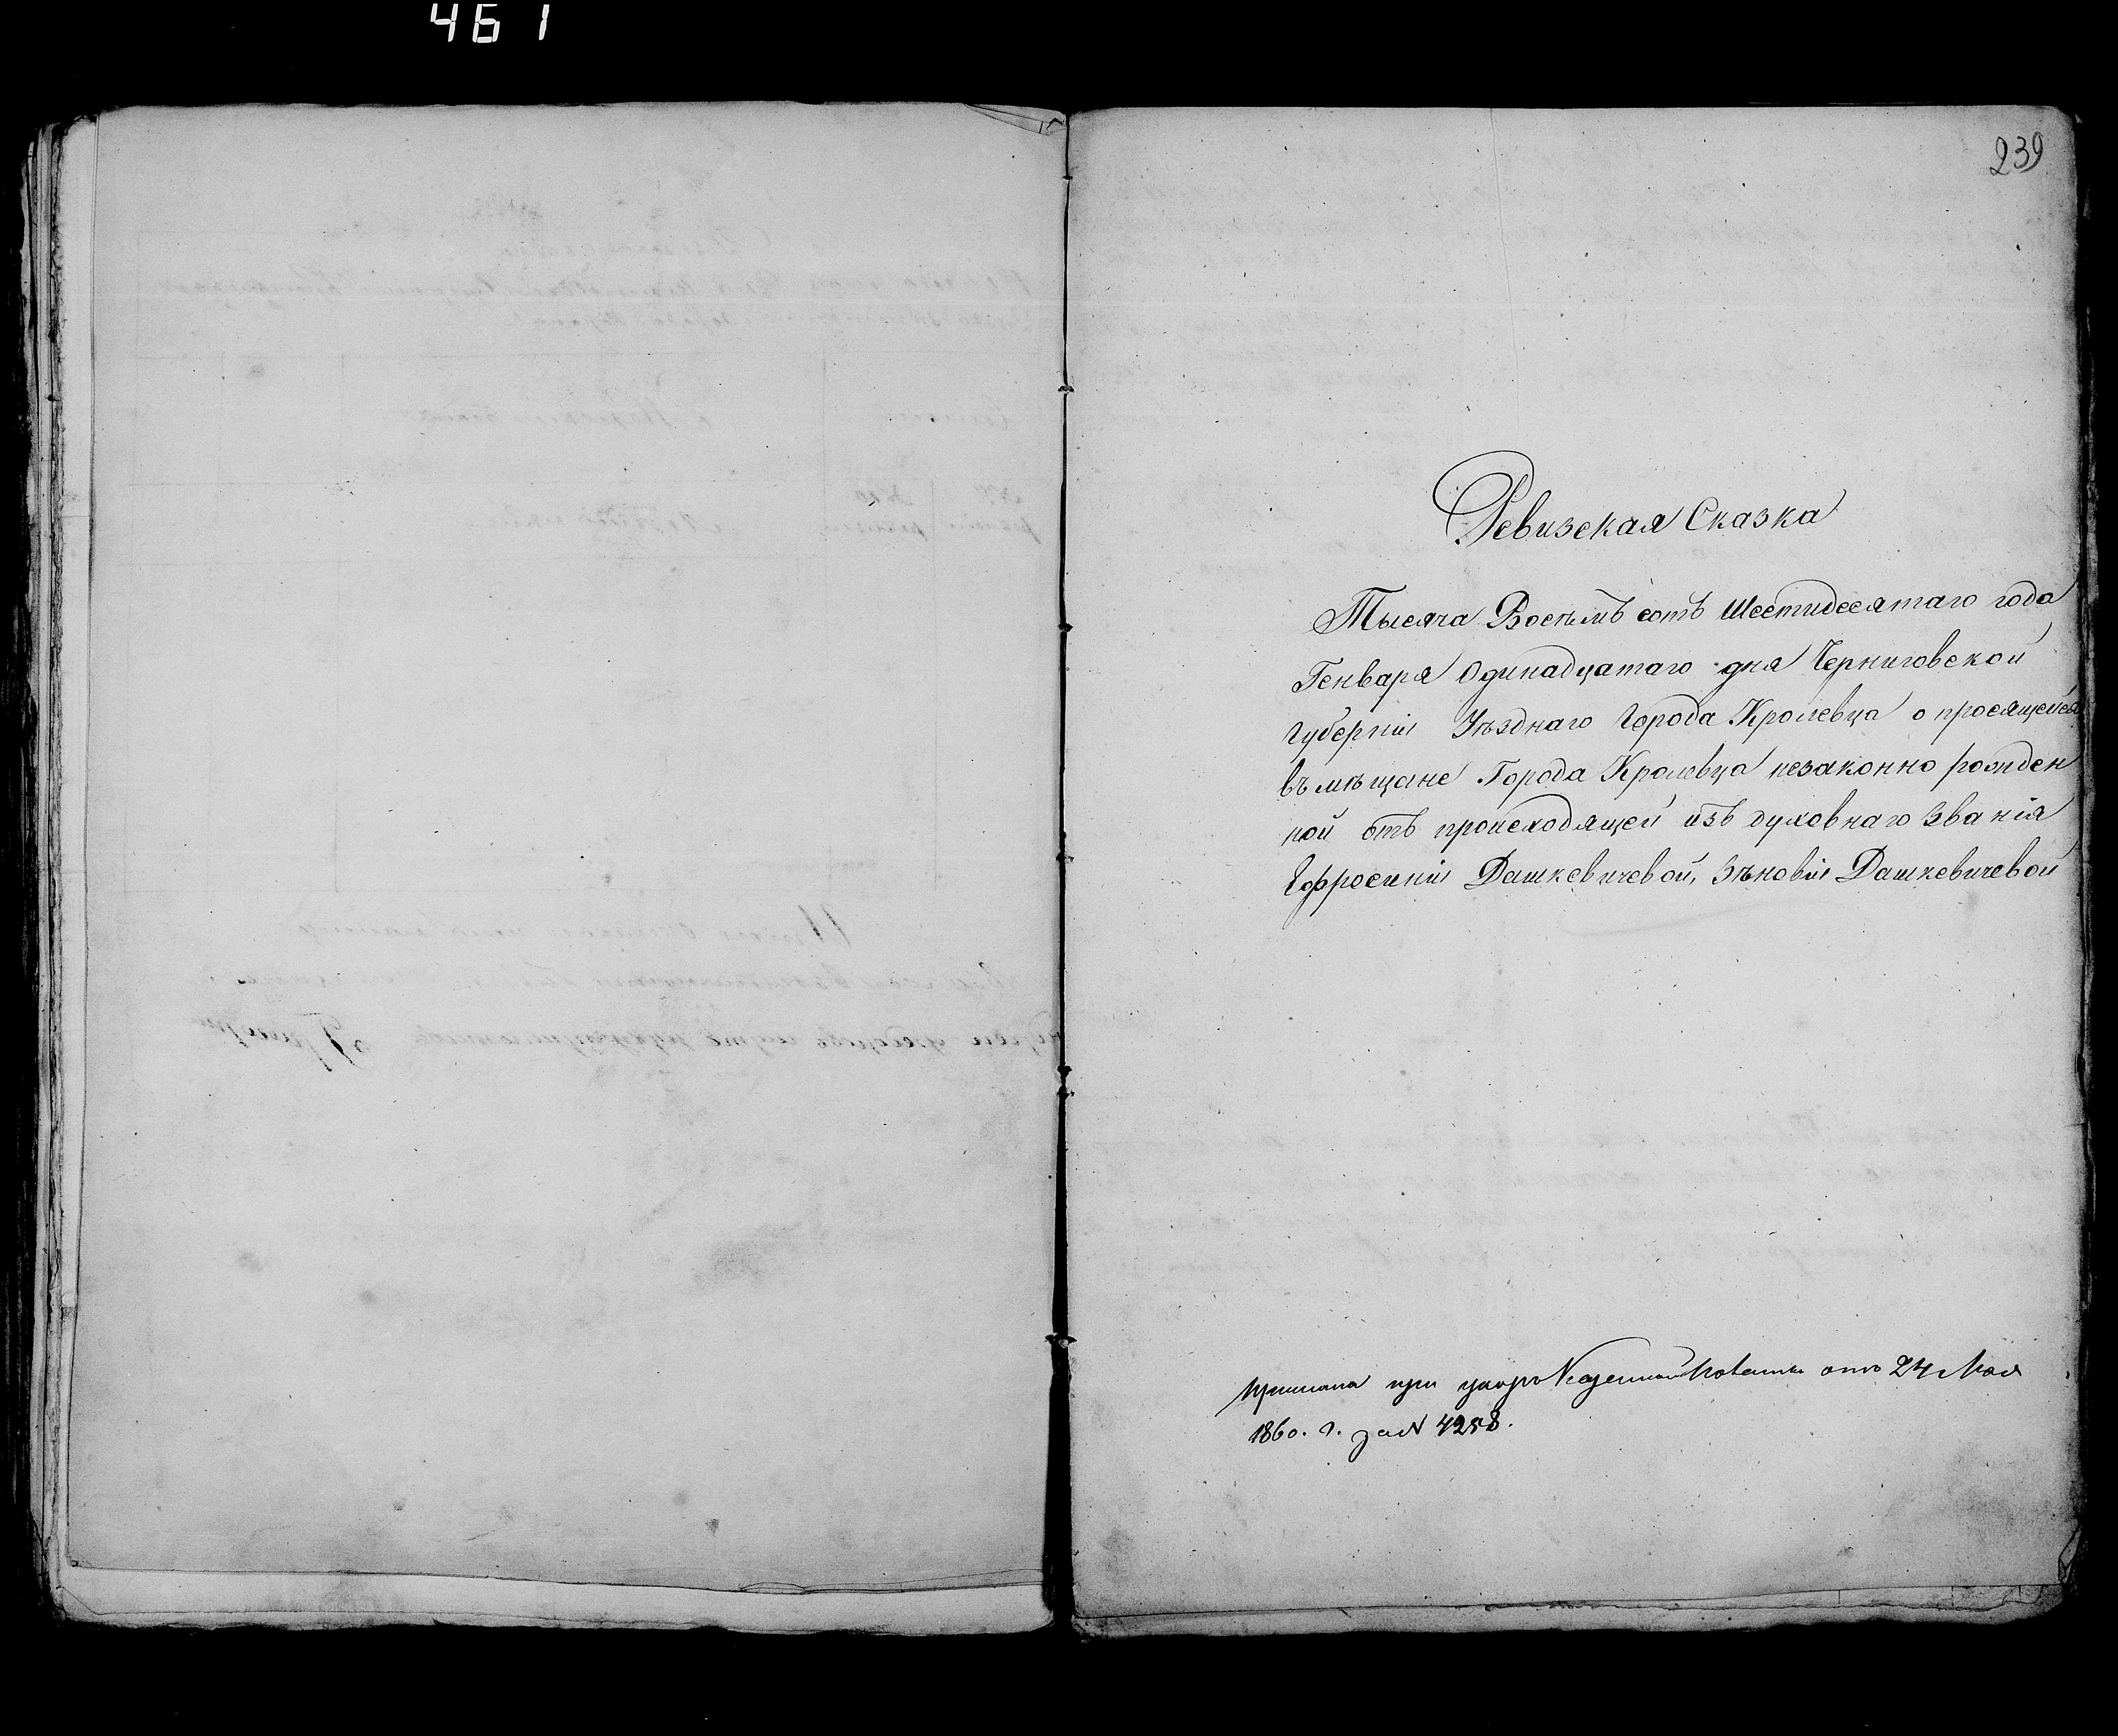 461
239
Ревизская Сказка
Тысяча Восѣмъ сотъ Шестидесятаго года
Генваря Одинадцатаго дня Черниговской
Губерніи Уѣзднаго Города Кролевца о просящейся
въ мѣщане Города Кролевца незаконно рожден
ной отъ происходящей изъ духовнаго званія
Ефросиніи Дашкевичевой, Зѣновіи Дашкевичевой
при Казенной Палаты отъ 24 Мая
1860. г. за N 4258.